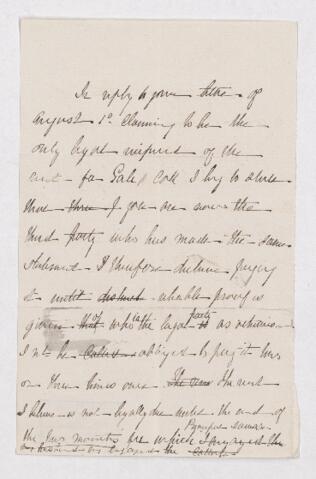 In reply to your letter of
August 1st claiming to be the
only legal recipient of the
rent for Gale Cott I beg to state
that I you are now the
third party who has made the same
statement I therefore decline paying
it until reliable proof is
given of who is the legal party as otherwise
I not be obliged to pay it twice
or three times over. The rent
I believe is not legally due until the end of
the two months for which I engaged the